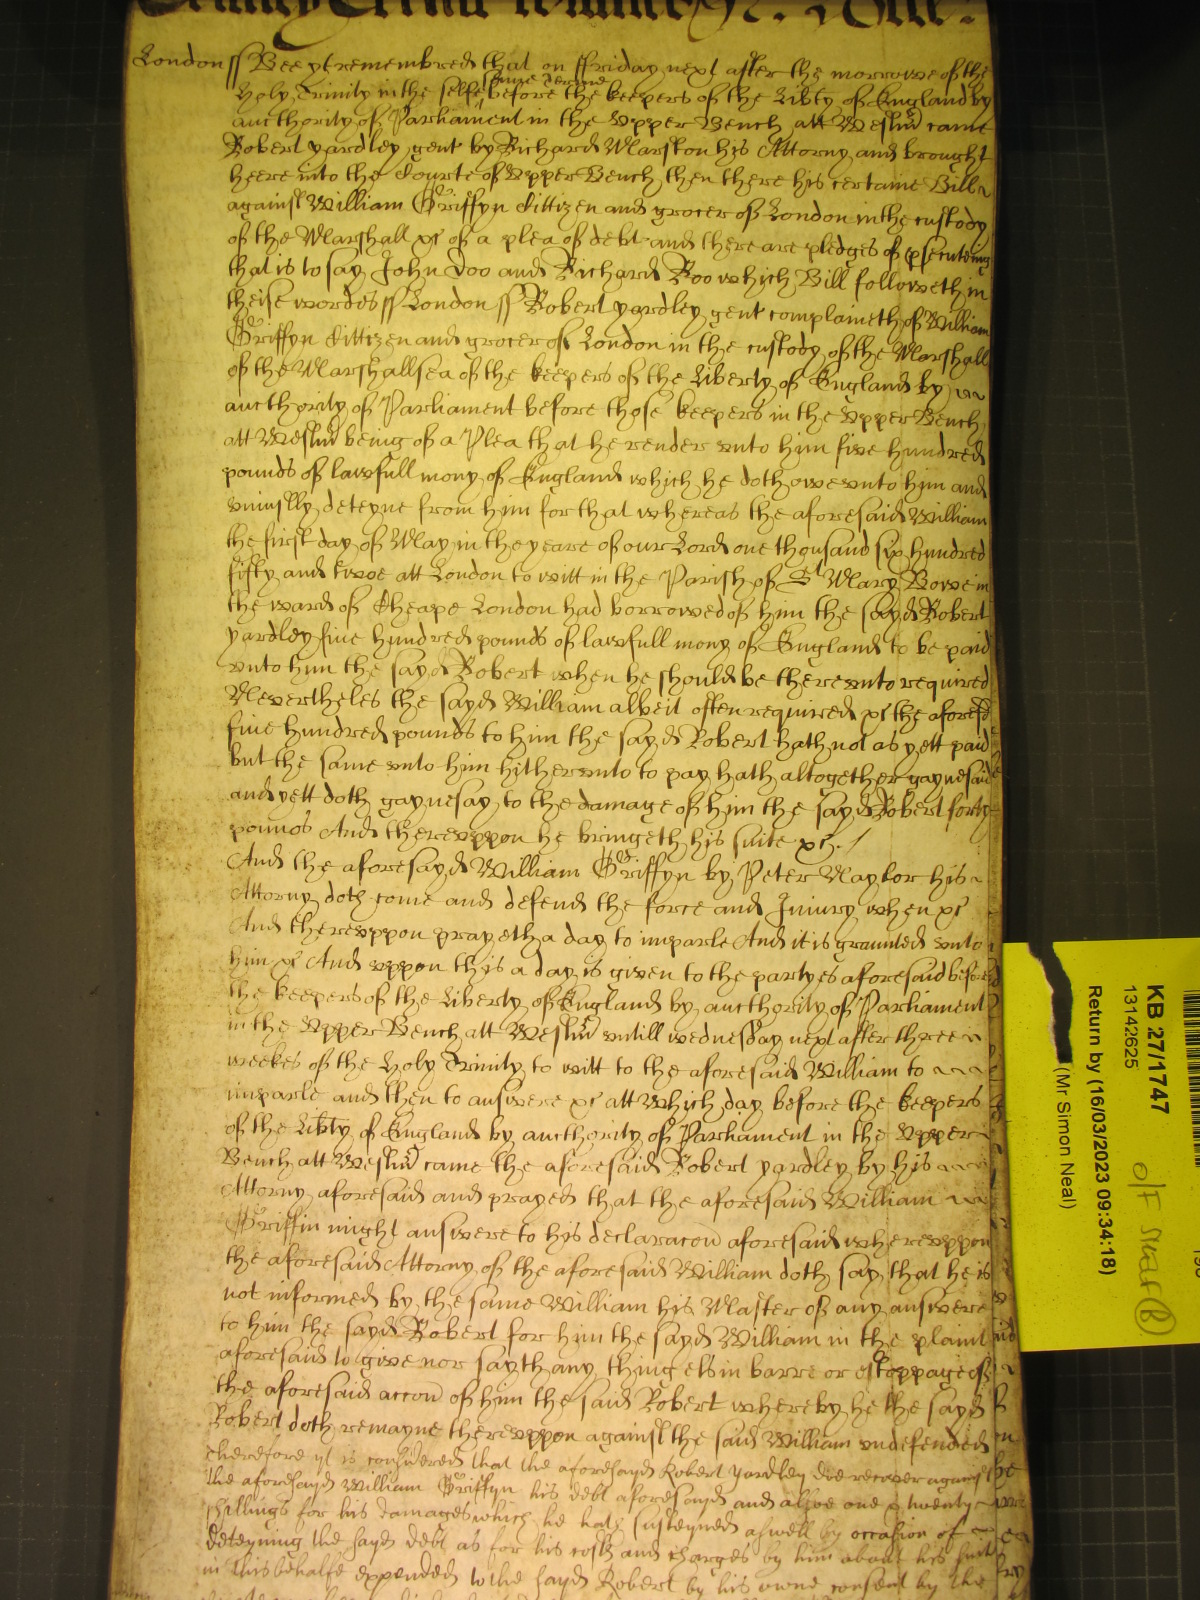 London ss Bee yt remembred that on ffriday next after the morrowe of the
Holy Trinity in the selfe same terme before the keepers of the Libty of England by
aucthority of Parliament in the Vpper Bench att Westm came
Robert yardley gent by Richard Marston his Attorny and brought
heere into the Courte of Vpper Bench then there his certaine Bill
against William Griffyn Cittizen and grocer of London in the custody
of the Marshall &c of a plea of debt and there are pledges of psecuteing
that is to say John Doo and Richard Roo which Bill followeth in
theise wordes ss London ss Robert yardley gent complaineth of William
Griffyn Cittizen and grocer of London in the custody of the Marshall
of the Marshallsea of the keepers of the Liberty of England by
aucthority of Parliament before those keepers in the Vpper Bench
att Westm being of a Plea that he render vnto him five hundred
pounds of lawfull mony of England which he doth owe vnto him and
vniustly deteyne from him for that whereas the aforesaid William
the first day of May in the yeare of our Lord one thousand six hundred
fifty and twoe att London to witt in the Parish of St Mary Bowe in
the ward of Cheape London had borrowed of him the sayd Robert
yardley five hundred pounds of lawfull mony of England to be paid
vnto him the sayd Robert when he should be therevnto required
Nevertheles the sayd William albeit often required &c the aforesd
five hundred pounds to him the sayd Robert hath not as yett paid
but the same vnto him hithervnto to pay hath altogether gaynesaid
and yett doth gaynesay to the damage of him the sayd Robert forty
pounds And therevppon he bringeth his suite &c.
And the aforesayd William Griffyn by Peter Naylor his
Attorny doth come and defend the force and Iniury when &c
And therevppon prayeth a day to imparle And it is graunted vnto
him &c And vppon this a day is given to the partyes aforesaid before
the keepers of the Liberty of England by aucthority of Parliament
in the Vpper Bench att Westm vntill wednesday next after three
weekes of the Holy Trinity to witt to the aforesaid William to
imparle and then to answere &c att which day before the keepers
of the Libty of England by aucthority of Parliament in the Vpper
Bench att Westm came the aforesaid Robert yardley by his
Attorny aforesaid and prayed that the aforesaid William
Griffin might answere to his declaracon aforesaid wherevppon
the aforesaid Attorny of the aforesaid William doth say that he is
not informed by the same William his Master of any answere
to him the sayd Robert for him the sayd William in the plaint
aforesaid to give nor sayth any thing els in barre or stoppage of
the aforesaid accon of him the said Robert whereby he the sayd
Robert doth remayne therevppon against the said William vndefended
Therefore yt is considered that the aforesayd Robert yardley doe recover against
the aforesayd William Griffyn his debt aforesayd and alsoe one & twenty
shillings for his damages which he hath susteyned aswell by occasion of
deteyning the sayd debt as for his costs and charges by him about his suit
in this behalfe expended to the sayd Robert by his owne consent by the
KB 27/1747
13142625
Return by (16/03/2023 09:34:18)
(Mr Simon Neal)